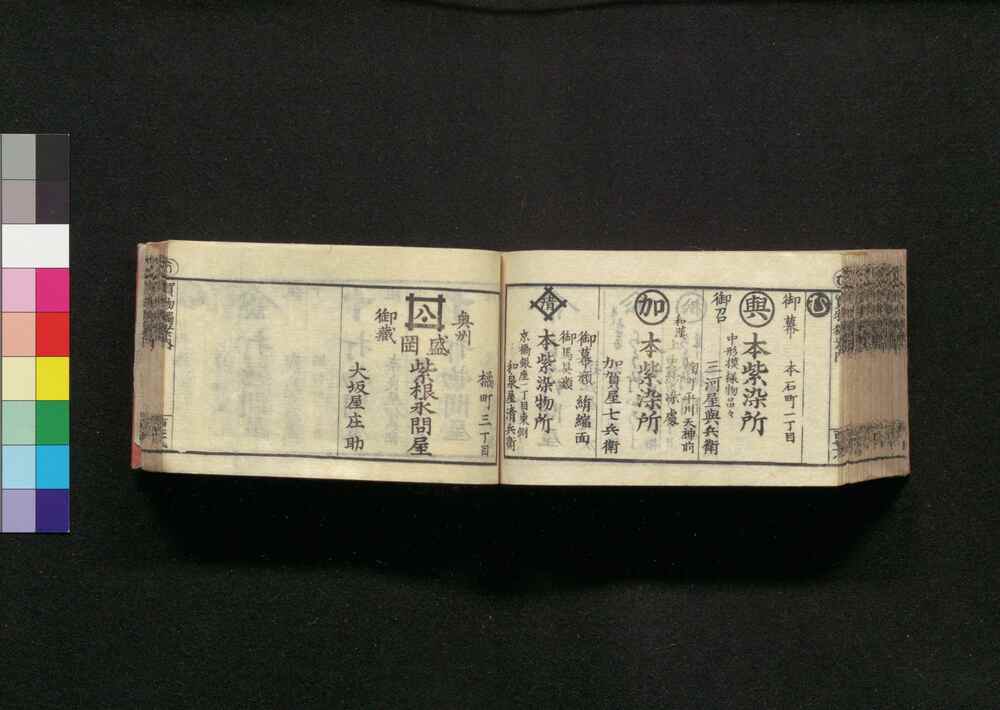 御幕
本石町一丁目
御召
興
本紫染所
中形模様物品々
三河屋與兵衛
加
本紫染所
麹町平川天神前
加賀屋七兵衛
清
本紫染物所
御幕類
絹縮面
御馬具類
京橋銀座一丁目東側
和泉屋清兵衛
橘町三丁目
奥州
盛岡
御蔵
紫根永問屋
大坂屋庄助